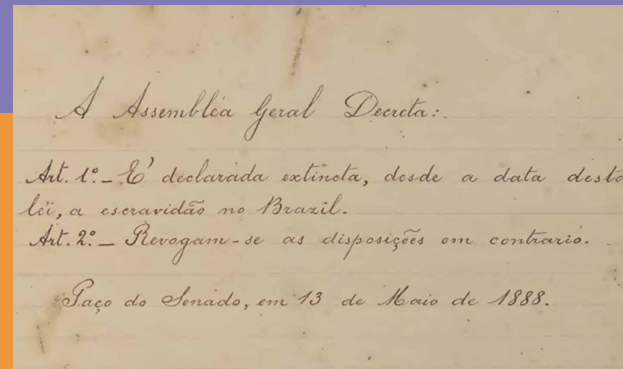 A Assembléa Geral Decreta:
Art. 1º_ E' declarada extincta, desde a data desta
lei, a escravidão no Brazil.
Art. 2º_ Revogam-se as disposições em contrario.
Paço do Senado, em 13 de Maio de 1888.